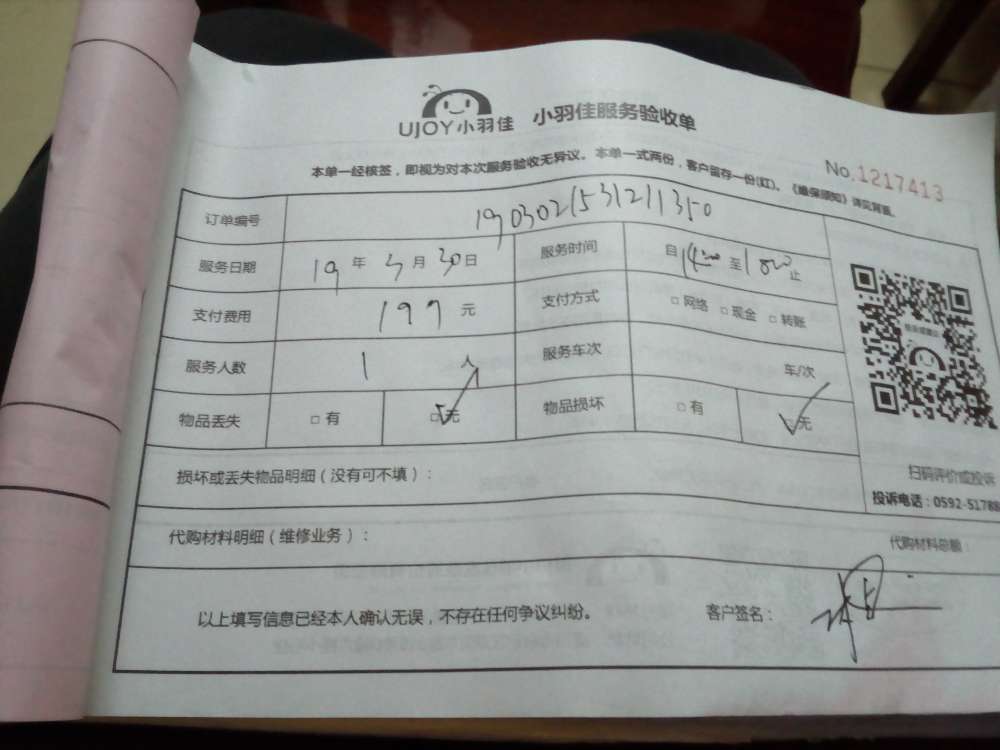 UJOY小羽佳 小羽佳服务验收单
No.1217413
本单一经核签，即视为对本次服务验收无异议。本单一式两份，客户留存一份(红)。《维保须知》详见背面。
订单编号 1903021531211350
服务日期 19年3月30日 服务时间 自1400至1800止
支付费用 197元 支付方式 □网络 □现金 □转账
服务人数 1人 服务车次 车/次
物品丢失 □有 ☑无 物品损坏 □有 ☑无
损坏或丢失物品明细（没有可不填）：
扫码评价或投诉
投诉电话：0592-5178
代购材料明细（维修业务）： 代购材料总额：
以上填写信息已经本人确认无误，不存在任何争议纠纷。 客户签名：